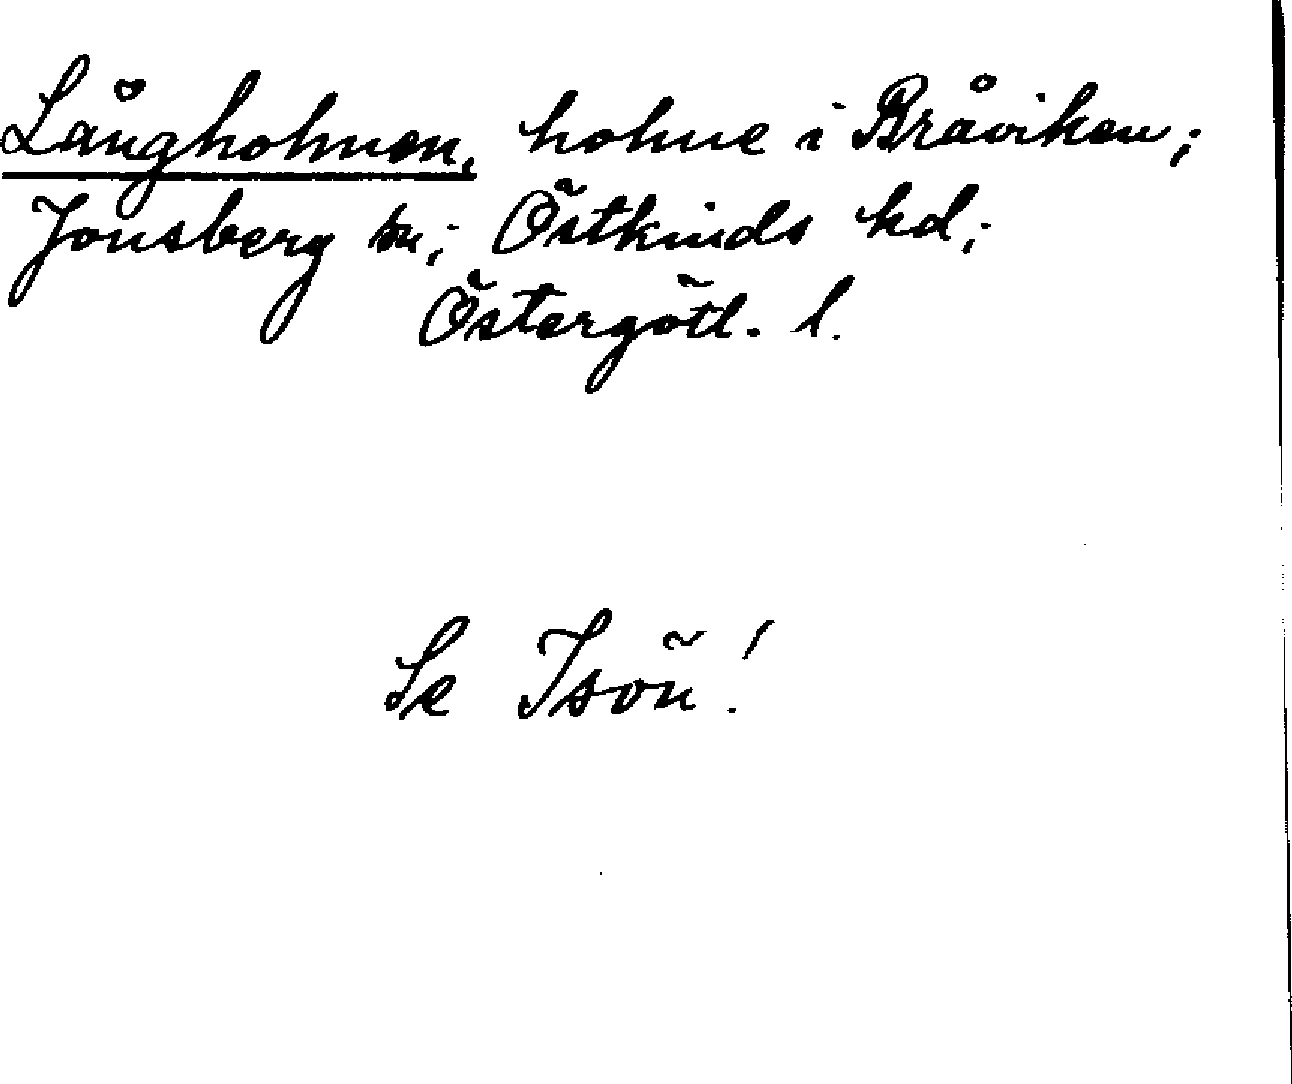 Långholmen, holme i Bråviken;
Jonsberg sn; Östkinds hd;
Östergötl. l.
Se Isön!